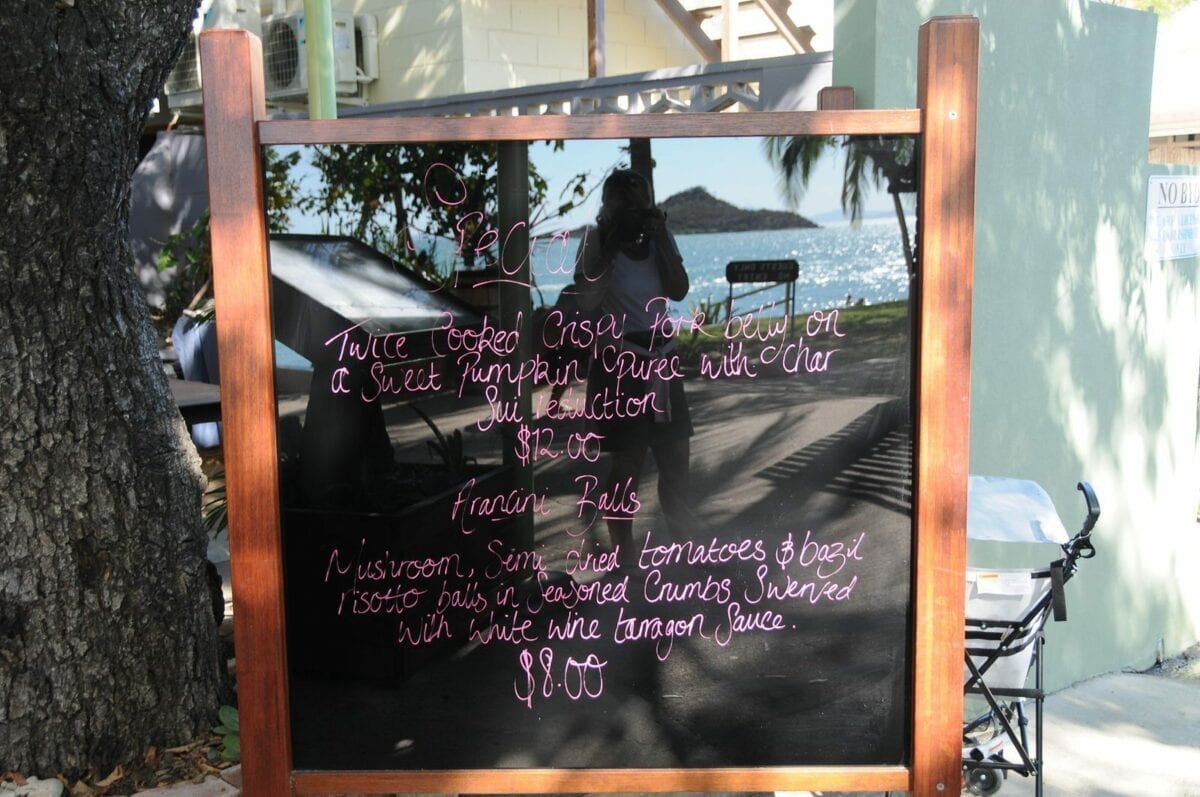 Special
Twice Cooked Crispy Pork belly on
a Sweet Pumpkin Puree with char
Sui reduction
$12.00
Arancini Balls
Mushroom, Semi dried tomatoes & bazil
risotto balls in Seasoned Crumbs Swerved
with white wine tarragon Sauce.
$8.00
GUESTS ONLY
NO ENTRY
NO